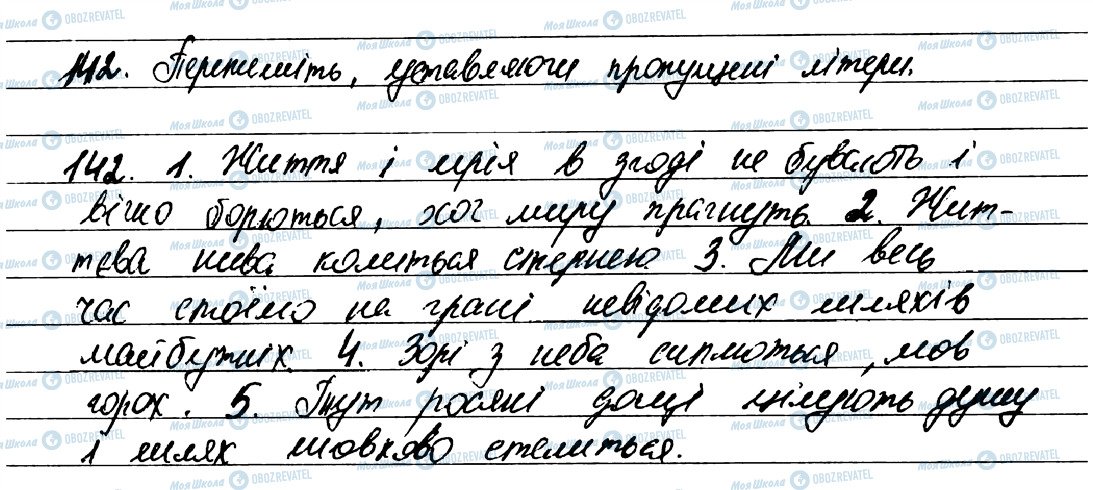 142. Перепишіть, уставляючи пропущені літери.
142. 1. Життя і мрія в згоді не бувають і
вічно борються, хоч миру прагнуть. 2. Жит-
тєва нива колиться стернею. 3. Ми весь
час стоїмо на грані невідомих шляхів
майбутніх. 4. Зорі з неба сиплються, мов
горох. 5. Тут росяні дощі цілують душу
і шлях шовково стелиться.